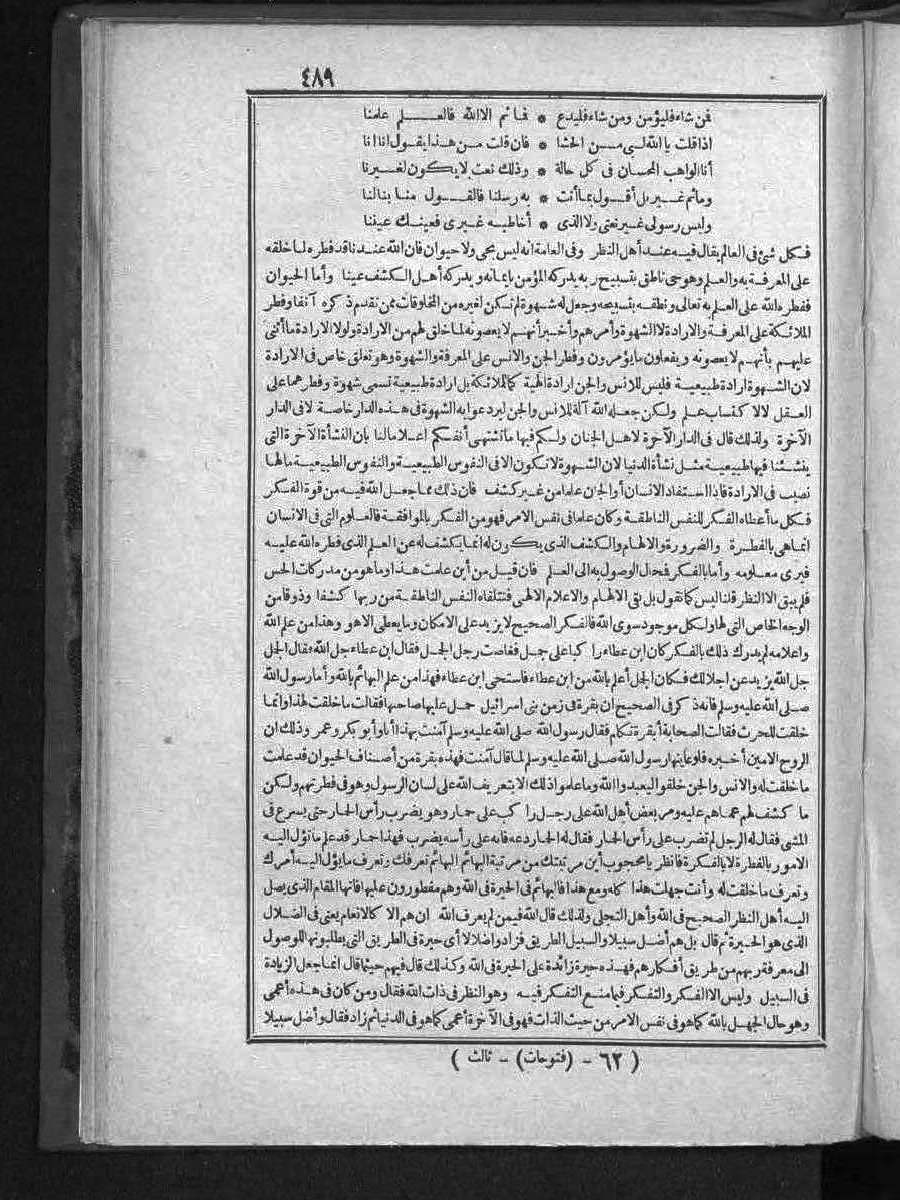 ٤٨٩
فمن شاء فليؤمن ومن شاء فليدع * فما ثم الا الله فالعلم علمنا
اذا قلت يا الله لبى من الحشا * فان قلت من هذا يقول انا انا
أنا الواهب المحسان فى كل حالة * وذلك نعت لا يكون لغيرنا
وما ثم غير بل أقول بما أنت * به رسلنا فالقول منا بنا لنا
وليس رسولى غير نعتى ولا الذى * أخاطبه غيرى فعينك عيننا
فكل شئ فى العالم يقال فيه عند أهل النظر وفى العامة انه ليس بحى ولا حيوان فان الله عندنا قد فطره لما خلقه
على المعرفة به والعلم وهو حى ناطق بتسبيح ربه يدركه المؤمن بايمانه ويدركه أهل الكشف عينا وأما الحيوان
ففطره الله على العلم به تعالى ونطقه بتسبيحه وجعل له شهوة لم تكن لغيره من المخلوقات ممن تقدم ذكره آنفا وفطر
الملائكة على المعرفة والارادة لا الشهوة وأمرهم وأخبر أنهم لا يعصونه لما خلق لهم من الارادة ولولا الارادة ما أثنى
عليهم بأنهم لا يعصونه ويفعلون ما يؤمرون وفطر الجن والانس على المعرفة والشهوة وهو تعلق خاص فى الارادة
لان الشهوة ارادة طبيعية فليس للانس والجن ارادة الهية كما للملائكة بل ارادة طبيعية تسمى شهوة وفطرهما على
العقل لا لاكتساب علم ولكن جعله الله آلة للانس والجن ليردعوا به الشهوة فى هذه الدار خاصة لا فى الدار
الآخرة ولذلك قال فى الدار الآخرة لاهل الجنان ولكم فيها ما تشتهى أنفسكم اعلاما لنا بان النشأة الآخرة التى
ينشئنا فيها طبيعية مثل نشأة الدنيا لان الشهوة لا تكون الا فى النفوس الطبيعية والنفوس الطبيعية مالها
نصيب فى الارادة فاذا استفاد الانسان أو الجان علما من غير كشف فان ذلك مما جعل الله فيه من قوة الفكر
فكل ما أعطاه الفكر للنفس الناطقة وكان علما فى نفس الامر فهو من الفكر بالموافقة فالعلوم التى فى الانسان
انما هى بالفطرة والضرورة والالهام والكشف الذى يكون له انما يكشف له عن العلم الذى فطره الله عليه
فيرى معلومه وأما بالفكر فحال الوصول به الى العلم فان قيل من أين علمت هذا وما هو من مدركات الحس
فلم يبق الا النظر قلنا ليس كما تقول بل بقى الالهام والاعلام الالهى فتتلقاه النفس الناطقة من ربها كشفا وذوقا من
الوجه الخاص التى لها ولكل موجود سوى الله فالفكر الصحيح لا يزيد على الامكان وما يعطى الا هو وهذا من علم الله
واعلامه لم يدرك ذلك بالفكر كان ابن عطاء راكبا على جمل فغاصت رجل الجمل فقال ابن عطاء جل الله فقال الجمل
جل الله يزيد عن اجلالك فكان الجمل أعلم بالله من ابن عطاء فاستحى ابن عطاء فهذا من علم البهائم بالله وأما رسول الله
صلى الله عليه وسلم فانه ذكر فى الصحيح ان بقرة فى زمن بنى اسرائيل حمل عليها صاحبها فقالت ما خلقت لهذا وانما
خلقت للحرث فقالت الصحابة أبقرة تكلم فقال رسول الله صلى الله عليه وسلم آمنت بهذا أنا وأبو بكر وعمر وذلك ان
الروح الامين أخبره فلو عاينها رسول الله صلى الله عليه وسلم لما قال آمنت فهذه بقرة من أصناف الحيوان قد علمت
ما خلقت له والانس والجن خلقوا ليعبدوا الله وما علموا ذلك الا بتعريف الله على لسان الرسول وهو فى فطرتهم ولكن
ما كشف لهم عما هم عليه ومر بعض أهل الله على رجل راكب على حمار وهو يضرب رأس الحمار حتى يسرع فى
المشى فقال له الرجل لم تضرب على رأس الحمار فقال له الحمار دعه فانه على رأسه يضرب فهذا حمار قد علم ما تؤل اليه
الامور بالفطرة لا بالفكرة فانظر يا محجوب أين مرتبتك من مرتبة البهائم البهائم تعرفك وتعرف ما يؤل اليه أمرك
وتعرف ما خلقت له وأنت جهلت هذا كله ومع هذا فالبهائم فى الحيرة فى الله وهم مفطورون عليها فانها المقام الذى يصل
اليه أهل النظر الصحيح فى الله وأهل التجلى ولذلك قال الله فيمن لم يعرف الله ان هم الا كالانعام يعنى فى الضلال
الذى هو الحيرة ثم قال بل هم أضل سبيلا والسبيل الطريق فزادوا ضلالا أى حيرة فى الطريق التى يطلبونها للوصول
الى معرفة ربهم من طريق أفكارهم فهذه حيرة زائدة على الحيرة فى الله وكذلك قال فيهم حيثما قال انما جعل الزيادة
فى السبيل وليس الا الفكر والتفكر فيما منع التفكر فيه وهو النظر فى ذات الله فقال ومن كان فى هذه أعمى
وهو حال الجهل بالله كما هو فى نفس الامر من حيث الذات فهو فى الآخرة أعمى كما هو فى الدنيا ثم زاد فقال وأضل سبيلا
( ٦٢ - (فتوحات) - ثالث )